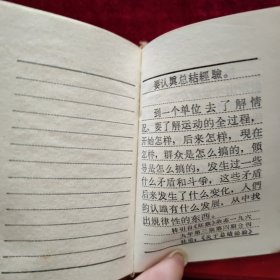 要认真总结經驗。
到一个单位去了解情
况，要了解运动的全过程，
开始怎样，后来怎样，现在
怎样，群众是怎么搞的，领
导是怎么搞的，发生过一些
什么矛盾和斗争，这些矛盾
后来发生了什么变化，人們
的认識有什么发展，从中找
出規律性的东西。